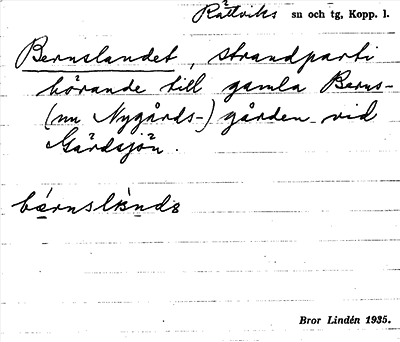 Rättviks sn och tg, Kopp. l.
Bernslandet, strandparti
hörande till gamla Berns-
(nu Nygårds-) gården vid
Gärdsjön.
Bror Lindén 1935.